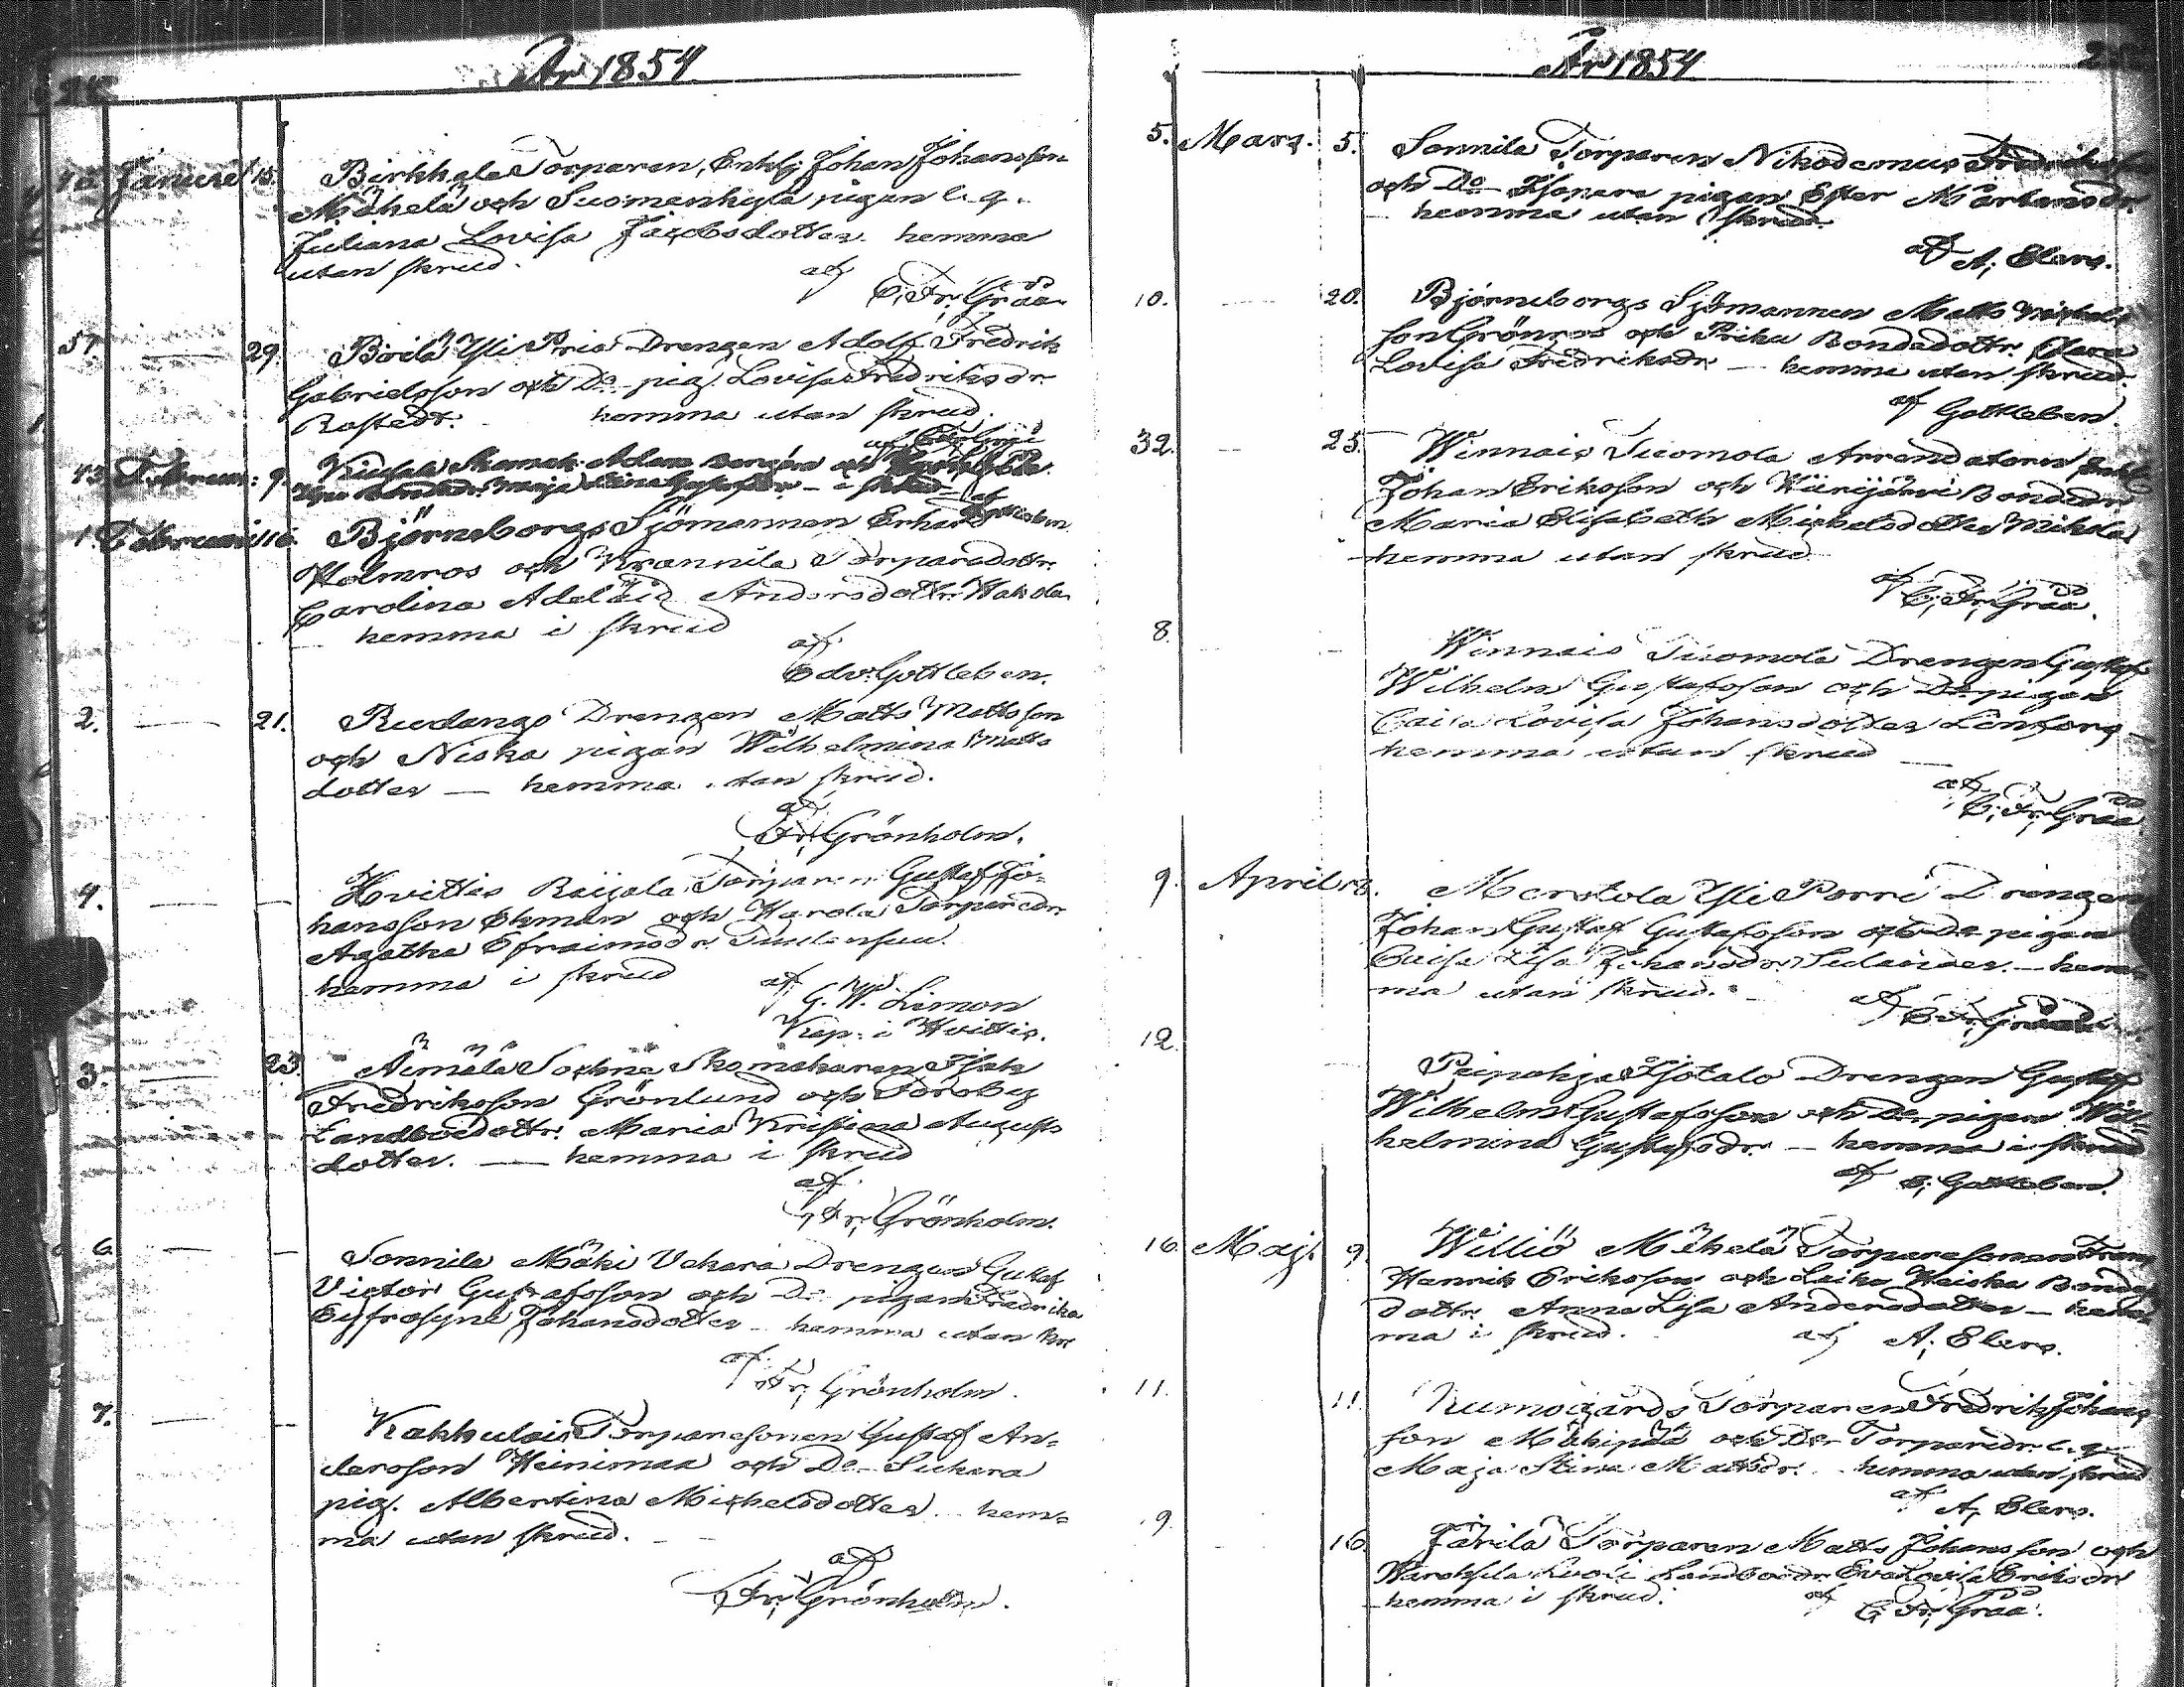 År 1854
Januari 15. Birkkala Torparen, Enkl: Johan Johansson
Mäkelä och Suomenkylä pigan e. q.
Juliana Lovisa Jacobsdotter hemma
utan skrud.
af
C. Fr. Gråå
57. — 29. Böilä Yli Pria Drengen Adolf Fredrik
Gabrielsson och Do pig. Lovisa Fredriksdr.
Rostedt. hemma utan skrud.
43. Februar: 9. Adam och
Maja i skrud
1. Februari 16. Björneborgs Sjömannen Erhard
Holmros och Krannila Torparedottr.
Carolina Adelaid Andersdottr. Hakola
hemma i skrud
af
Edv. Gottleben.
2. — 21. Rudango Drengen Matts Mattsson
och Niska pigan Wilhelmina Matts
dotter — hemma utan skrud.
af
Fr. Grönholm.
4. — — Hvittis Raijala Torparen Gustaf Jo-
hansson Ekman och Harola Torparedr.
Agatha Efraimsdr.
hemma i skrud
af
G. W. Limon
Kap. i Hvittis.
3. — 23. Äimälä Sockne Skomakaren Isak
Fredriksson Grönlund och Forsby
Landboedottr. Maria Kristina Augusts
dotter. — hemma i skrud
af
Fr. Grönholm.
6. — — Sonnila Mäki Vakara Drengen Gustaf
Victor Gustafsson och Do pigan Fredrika
Eufrosyne Johansdotter — hemma utan skr
af
Fr. Grönholm.
7. — — Kakkulais Torparesonen Gustaf An-
dersson Heinimaa och Do Sukara
pig. Albertina Michelsdotter hem-
ma utan skrud.
af
Fr. Grönholm.
År 1854
5. Mars. 5. Sonnila Torparen Nikodemus Fredriksson
och Do Isopere pigan Ester Mårtensdr.
hemma utan skrud.
af A. Elers.
10. — 20. Björneborgs Sjömannen Matts Michels
son Grönros och Prika Bondedottr. Clara
Lovisa Fredriksdr. — hemma utan skrud.
af Gottleben.
32. — 25. Winnais Suomola Arrendatorn Enkl
Johan Eriksson och Kiurijärvi Bondedr.
Maria Elisabeth Michelsdotter Mikola
hemma utan skrud
af C. Fr. Gråå.
8. — — Winnais Suomola Drengen Gustaf
Wilhelm Gustafsson och Do pigan
Caisa Lovisa Johansdotter Lenforg
hemma utan skrud —
af
C. Fr. Gråå
9. April Merstola Yli Porri Drengen
Johan Gustaf Gustafsson och Do pigan
Caisa Lisa Johansdr. — hem-
ma utan skrud.
af C. Fr. Gråå
12. Peipohja Isotalo Drengen Gustaf
Wilhelm Gustafsson och Do pigan Wil-
helmina Gustafsdr. — hemma i skrud
af E. Gottleben.
16. Maj. 9. Williö Mäkelä Torparesonen Frans
Henrik Eriksson och Laiko Heiska Bonde
dottr. Anna Lisa Andersdotter — hem-
ma i skrud. af A. Elers.
11. 11. Kumogårds Torparen Fredrik Johans
son Mäkinpää och Do Torparedr. e. q.
Maja Stina Mattsdr. hemma utan skrud
af A. Elers.
9. — 16. Järilä Torparen Matts Johansson och
Landboedr. Eva Lovisa Eriksdr
hemma i skrud. af C. Fr. Gråå.